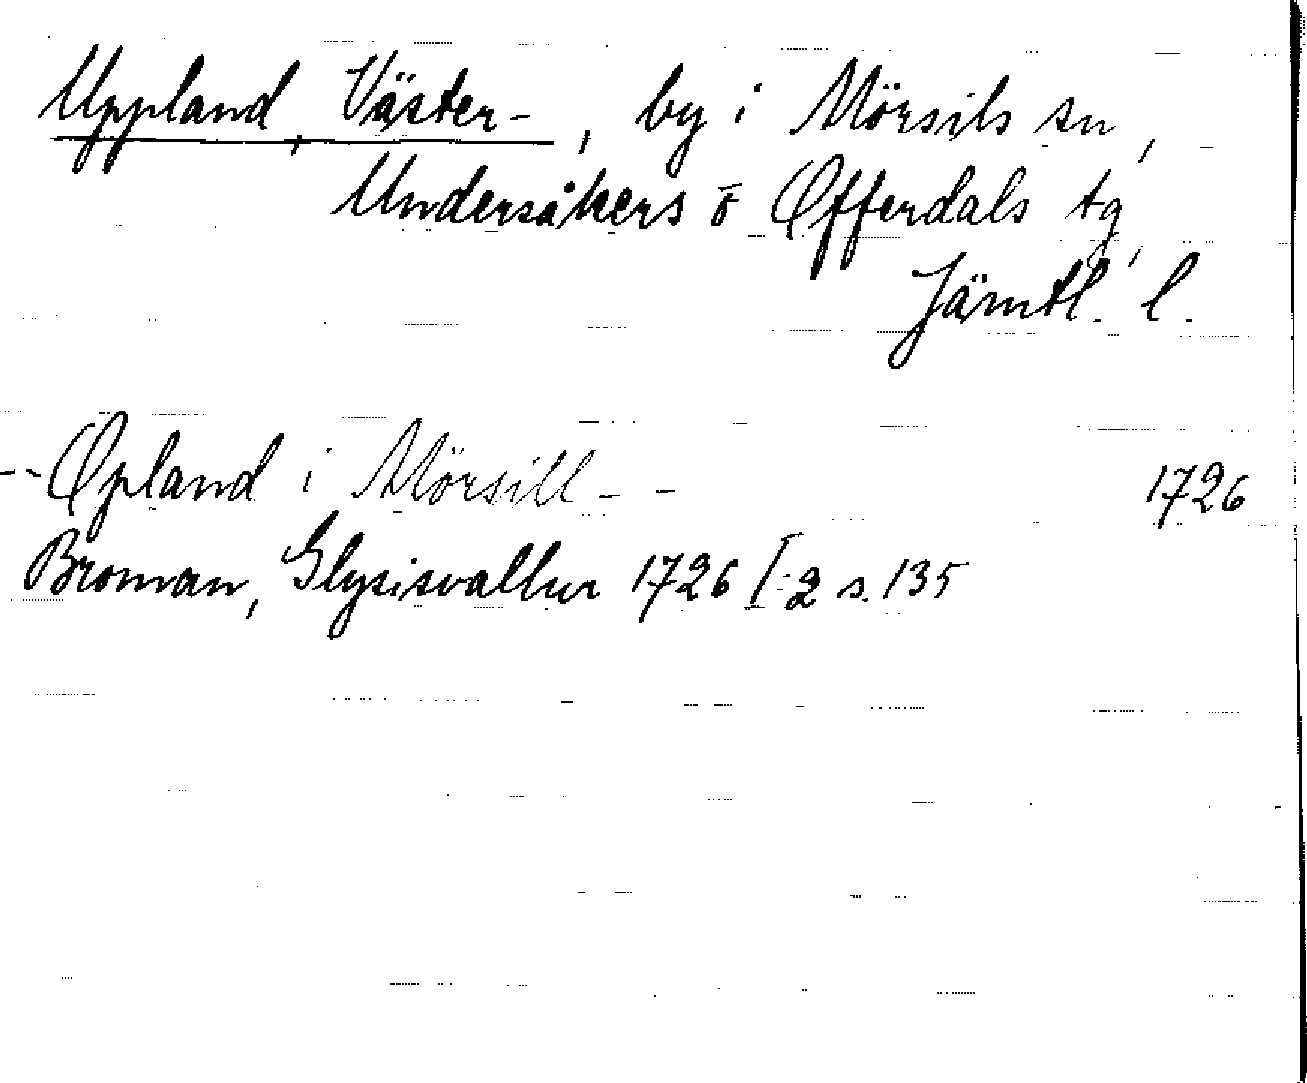 Uppland, Väster-, by i Mörsils sn,
Undersåkers o Offerdals tg,
Jämtl. l.
-- Opland i Mörsill -- 1726
Broman, Glysisvallur 1726 I:2 s. 135